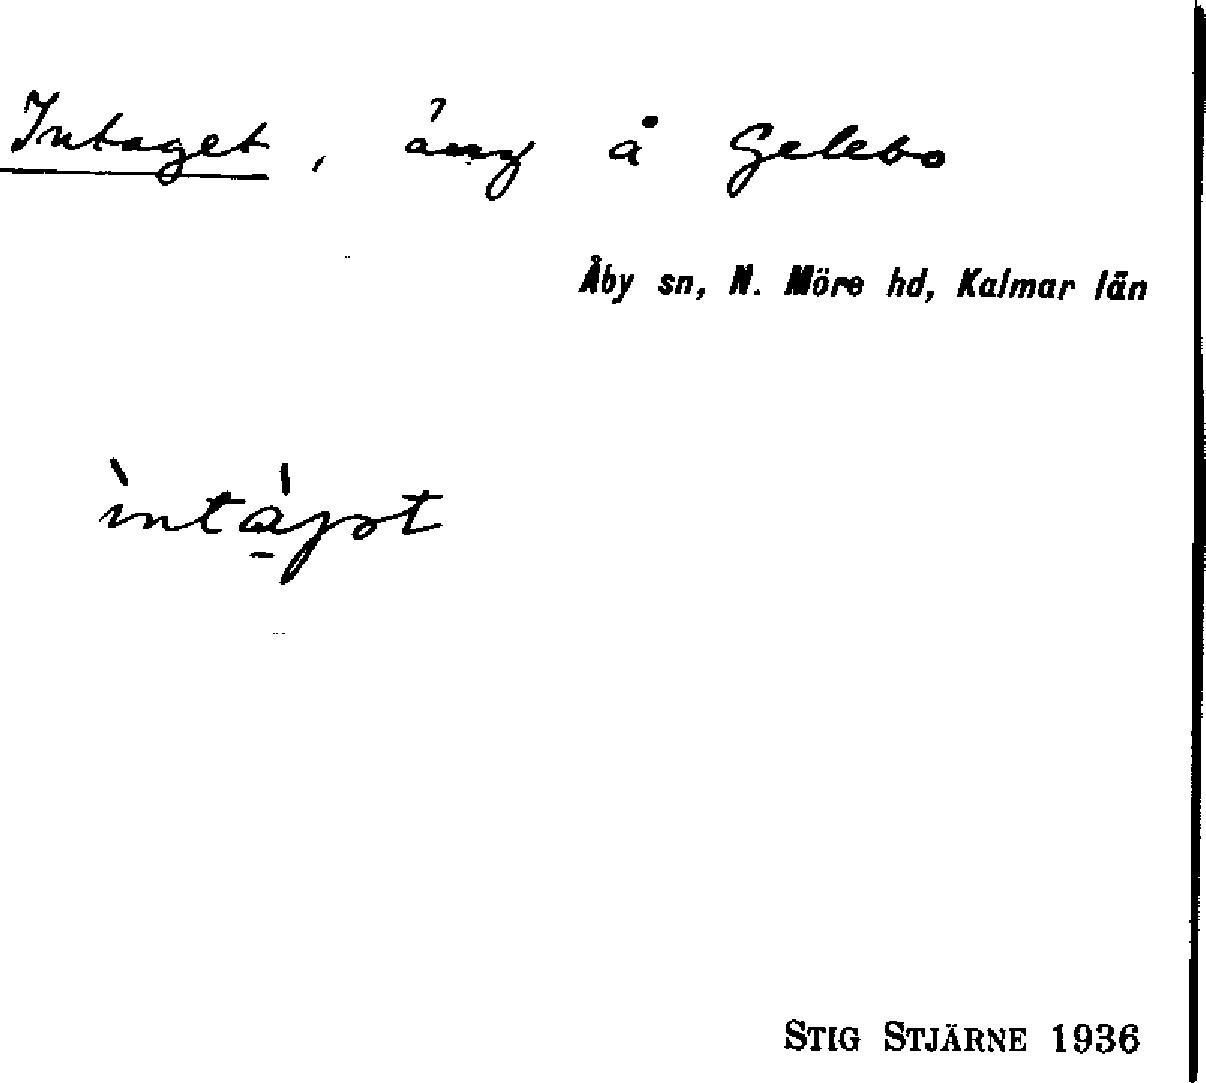 Intaget, äng å Gelebo
Åby sn, N. Möre hd, Kalmar län
STIG STJÄRNE 1936